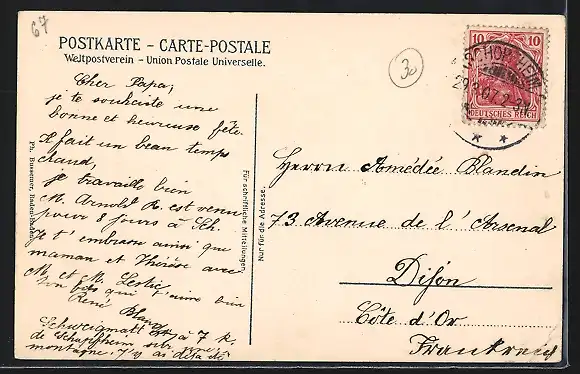 67
POSTKARTE – CARTE-POSTALE
Weltpostverein – Union Postale Universelle.
30
10 10
DEUTSCHES REICH
SCHOPFHEIM
Cher Papa,
je te souhaite une
bonne et heureuse fête.
Il fait un beau temps
chaud,
je travaille bien
M. Arnold R. est venu
pour 8 jours à Sch.
Je t'embrasse ainsi que
maman et Thérèse avec
M. et M. Leslie
ton fils qui t'aime bien
René Blandin
Schweigmatt est à 7 k.
de Schopfheim sur une
montagne. J'y ai déjà été
Ph. Bussemer, Baden-Baden.
Für schriftliche Mitteilungen
Nur für die Adresse.
Herrn Amédée Blandin
73 Avenue de l'Arsenal
Dijon
Côte d'Or
Frankreich